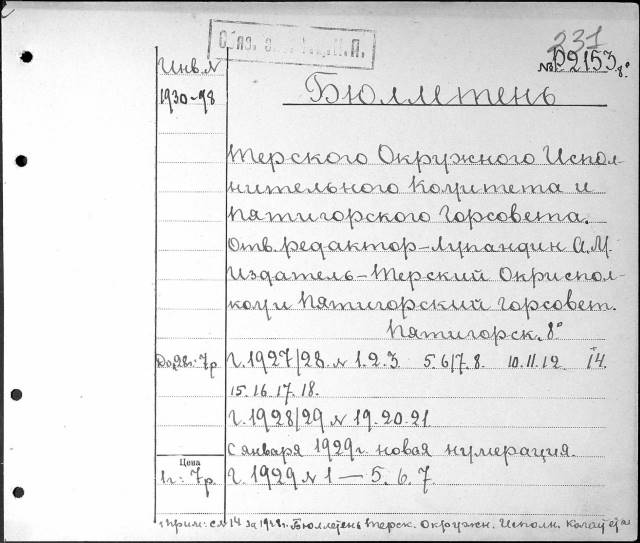 Обяз. экз. Ц.К.П.
231
№ 02153 8°
Инв. №
1930-98
Бюллетень
Терского Окружного Испол-
нительного Комитета и
Пятигорского Горсовета.
Отв. редактор-Лупандин А.М.
Издатель-Терский Окриспол-
ком и Пятигорский горсовет.
Пятигорск. 8°
До 28г. 7р.
г. 1927/28 № 1. 2. 3 5. 6/7. 8. 10. 11. 12 + 14.
15. 16. 17. 18.
г. 1928/29 № 19. 20. 21
с января 1929 г. новая нумерация.
Цена
1 г: 7р.
г. 1929 № 1 — 5. 6. 7.
+ Прим: с № 14 за 1928 г. Бюллетень Терск. Окружн. Исполн. Комитета